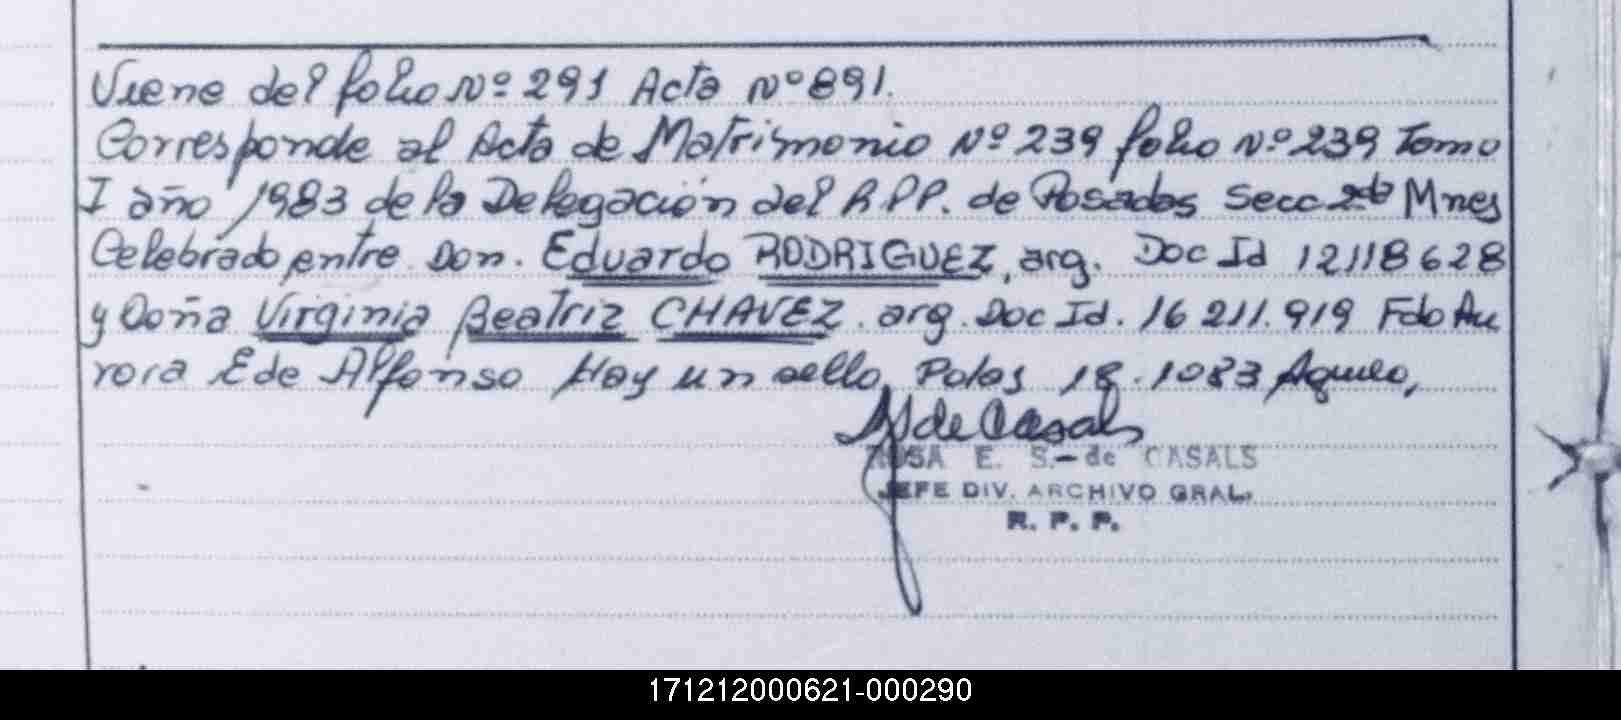 Viene del folio Nº 291 Acta Nº 891.
Corresponde al Acta de Matrimonio Nº 239 folio Nº 239 Tomo
I año 1983 de la Delegación del R.P.P. de Posadas Secc 2da Mnes
Celebrado entre Don. Eduardo RODRIGUEZ, arg. Doc Id 12118628
y Doña Virginia Beatriz CHAVEZ. arg. Doc Id. 16 211.919 Fdo Au
rora E de Alfonso Hay un sello, Pdas 18.1083
de Casals
ROSA E. S.- de CASALS
JEFE DIV. ARCHIVO GRAL.
R. P. P.
171212000621-000290